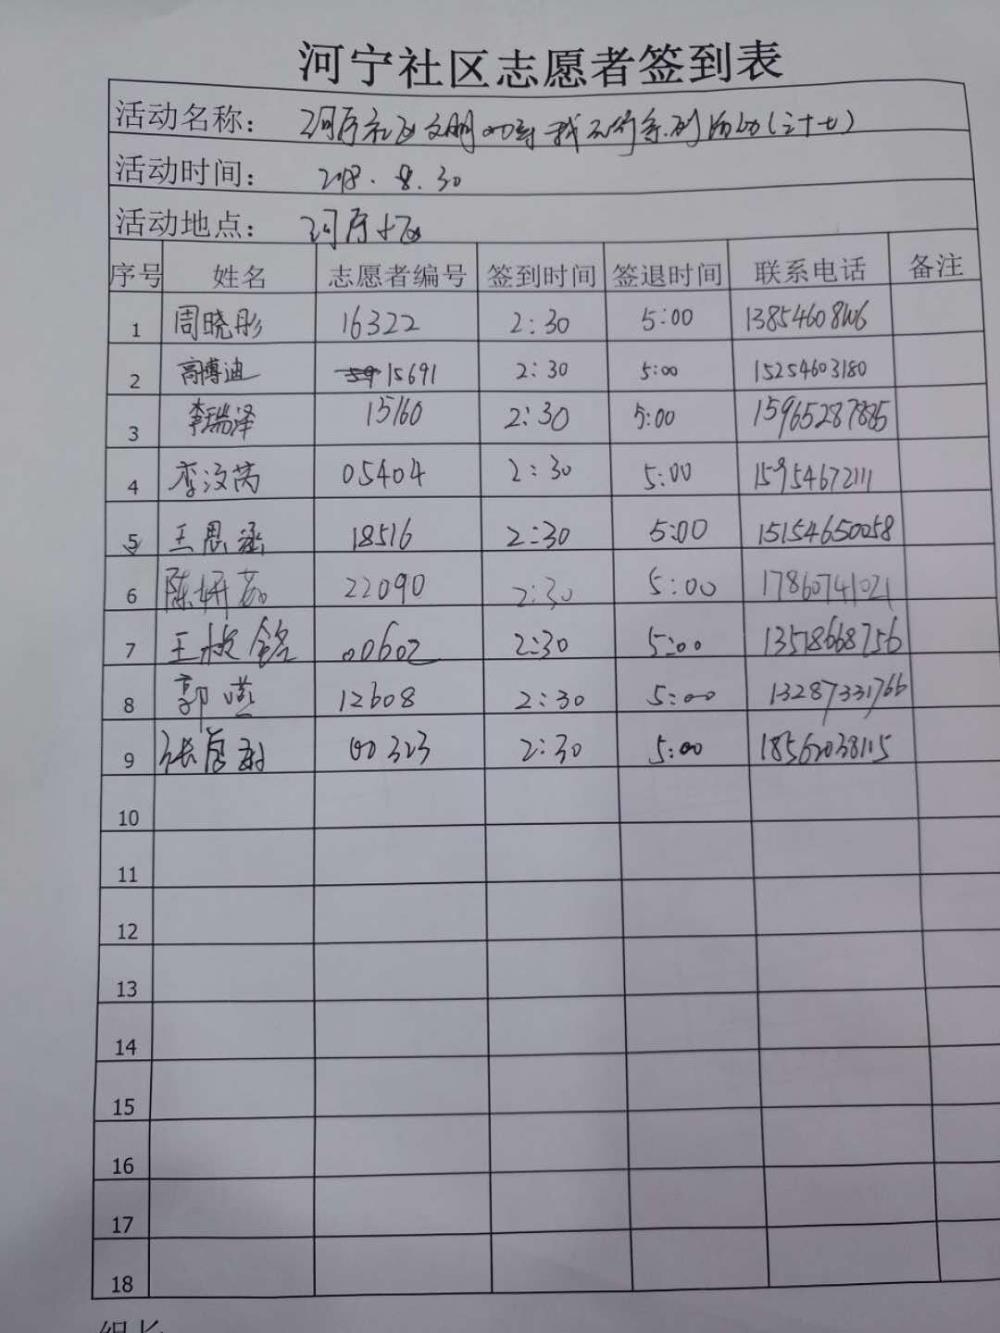 河宁社区志愿者签到表
活动名称： 河宁社区文明 我 系列活动(三十七)
活动时间： 2018.8.30
活动地点： 河宁社区
序号 姓名 志愿者编号 签到时间 签退时间 联系电话 备注
1 周晓彤 16322 2:30 5:00
2 高博迪 15691 2:30 5:00 15254603180
3 李瑞泽 15160 2:30 5:00 15965287885
4 李汶芮 05404 2:30 5:00 15954672111
5 王思涵 18516 2:30 5:00 15154650058
6 陈妍 22090 2:30 5:00 17860741021
7 王 铭 00602 2:30 5:00 13518668756
8 郭 12608 2:30 5:00 13287331766
9 张 00323 2:30 5:00 18562038115
10
11
12
13
14
15
16
17
18
组长